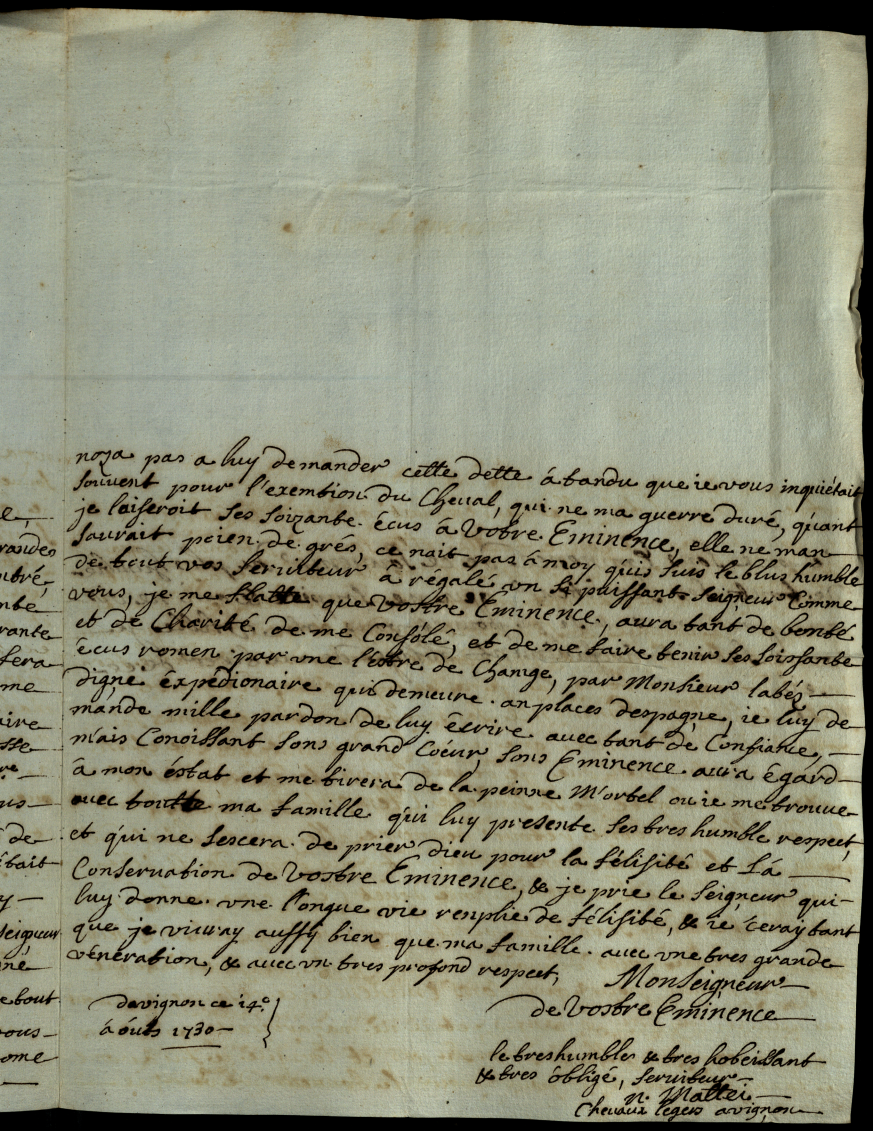 noza pas a luy demander cette dette á tandu que ie vous inquiétait
souvent pour l'exemtion du Cheval, qui ne ma guerre duré, qúant
je laiseroit ses soizante écus á Vostre Eminence, elle ne man
saurait poien de grés, ce nait pas á moy qúis suis le blus humble
de tout vos serviteur á régalé un si puissant seigneur Comme
vous, je me flatte que Vostre Eminence, aura tant de bonté
et de Charité de me Consólé, et de me faire tenir ses soissante
écus romen par vne létre de Change, par Monsieur labéz
digne éxpédionaire qui demeure an places despagne, ie luy de
mande mille pardon de luy écrire avec tant de Confiance,
mais Conoissant sons grand Coeur, sons Eminence aura égard
á mon éstat et me tirera de la peinne Mortel ou ie me trouve
avec toutte ma famille qúi luy presente ses tres humble respect,
et qúi ne sescera de prier dieu pour la félisité et Lá
Conservation de Vostre Eminence, & je prie le seigneur qui
luy donne vne longue vie renplie de félisité, & ie ceray tant
que je viuray aussy bien que ma famille avec vne tres grande
vénération, & avec vn tres profond respect,
Monseigneur
de Vostre Eminence
davignon ce 14e
á óuts 1730
le tres humble & tres hobeissant
& tres óbligé, serviteur
n. Mattei
Chevaux légers avignon
e,
randes
ntré,
nte
rante
sera
me
aire
sse
re
us
de
était
y
seigneur
né
e tout
vous
ome